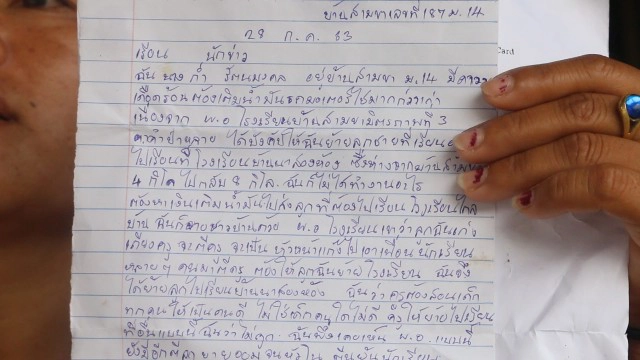 บ้านสามขาเลขที่ 187 ม.14
28 ก.ค. 63
เรียน นักข่าว
ฉัน นางก่ำ รัตนมงคล อยู่บ้านสามขา ม.14 มีความ
เดือดร้อนต้องเติมน้ำมันรถมอเตอร์ไซมากกว่าเก่า
เนื่องจาก ผ.อ โรงเรียนบ้านสามขามิตรภาพที่ 3
ได้บังคับให้ฉันย้ายลูกชายที่เรียน
ไปเรียนที่โรงเรียนบ้านนาสองห้อง ซึ่งห่างจากบ้านสามขา
4 กิโล ไปกลับ 8 กิโล ฉันก็ไม่ได้ทำงานอะไร
ต้องหาเงินเติมน้ำมันไปส่งลูกที่ต้องไปเรียนโรงเรียนไกล
บ้าน ฉันก็อายชาวบ้านด้วย ผ.อ โรงเรียนเขาว่าลูกฉันเก่ง
เถียงครู จะตีครู จะเป็นหัวหน้าแก๊งไปเอาเพื่อนนักเรียน
หลายๆ คนมาตีครู ต้องให้ลูกฉันย้ายโรงเรียน ฉันจึง
ได้ย้ายลูกไปเรียนบ้านนาสองห้อง ฉันว่าครูต้องสอนเด็ก
ทุกคนให้เป็นคนดี ไม่ใช่เด็กคนใดไม่ดี ครูให้ย้ายไปเรียน
ที่อื่นแบบนี้ฉันว่าไม่ถูก ฉันพึ่งเคยเห็น ผ.อ แบบนี้
Card